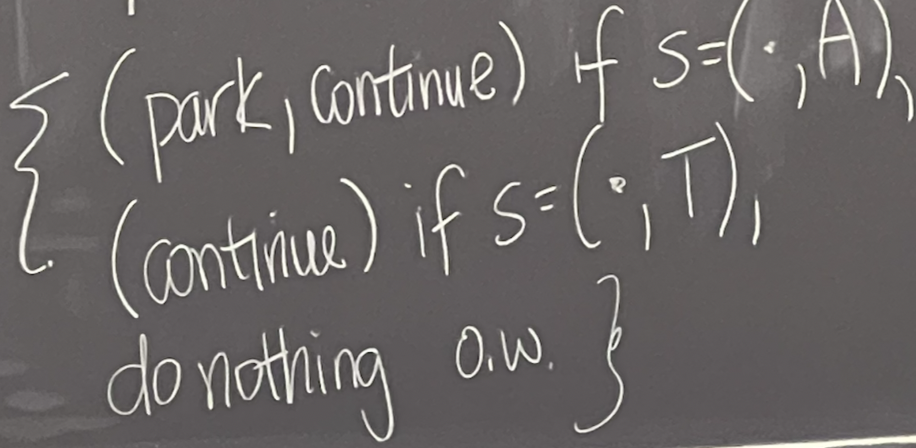 { (park, continue) if s=(·,A),
(continue) if s=(·,T),
do nothing o.w. }